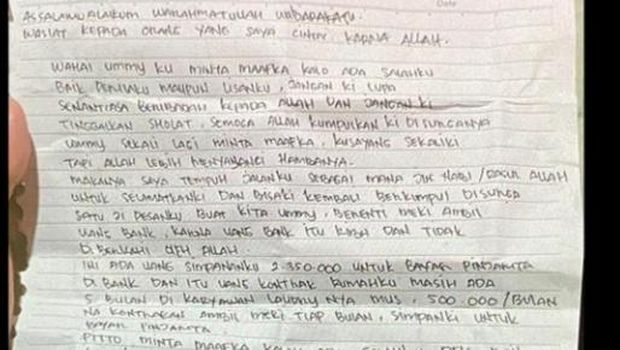 ASSALAMUALAIKUM WARAHMATULLAH WABARAKATU.
WASIAT KEPADA ORANG YANG SAYA CINTAI KARNA ALLAH.
WAHAI UMMY KU MINTA MAAFKA KALO ADA SALAHKU
BAIK PERILAKU MAUPUN LISANKU, JANGAN KI LUPA
SENANTIASA BERIBADAH KEPADA ALLAH DAN JANGAN KI
TINGGALKAN SHOLAT, SEMOGA ALLAH KUMPULKAN KI DISURGANYA
UMMY SEKALI LAGI MINTA MAAFKA, KUSAYANG SEKALIKI
TAPI ALLAH LEBIH MENYAYANGI HAMBANYA.
MAKANYA SAYA TEMPUH JALANKU SEBAGAI MANA NABI / RASUL ALLAH
UNTUK SELAMATKANKI DAN BISAKI KEMBALI BERKUMPUL DISURGA
SATU JI PESANKU BUAT KITA UMMY, BERENTI MEKI AMBIL
UANG BANK, KARNA UANG BANK ITU RIBA DAN TIDAK
DIBERKAHI OLEH ALLAH.
INI ADA UANG SIMPANANKU 2.350.000 UNTUK BAYAR PINJAMTA
DI BANK DAN ITU UANG KONTRAK RUMAHKU MASIH ADA
5 BULAN DI KARYAWAN LAUNDRYNYA MUS, 500.000 / BULAN
NA KONTRAKAN AMBIL MEKI TIAP BULAN, SIMPANKI UNTUK
BAYAR PINJAMTA.
MINTA MAAFKA